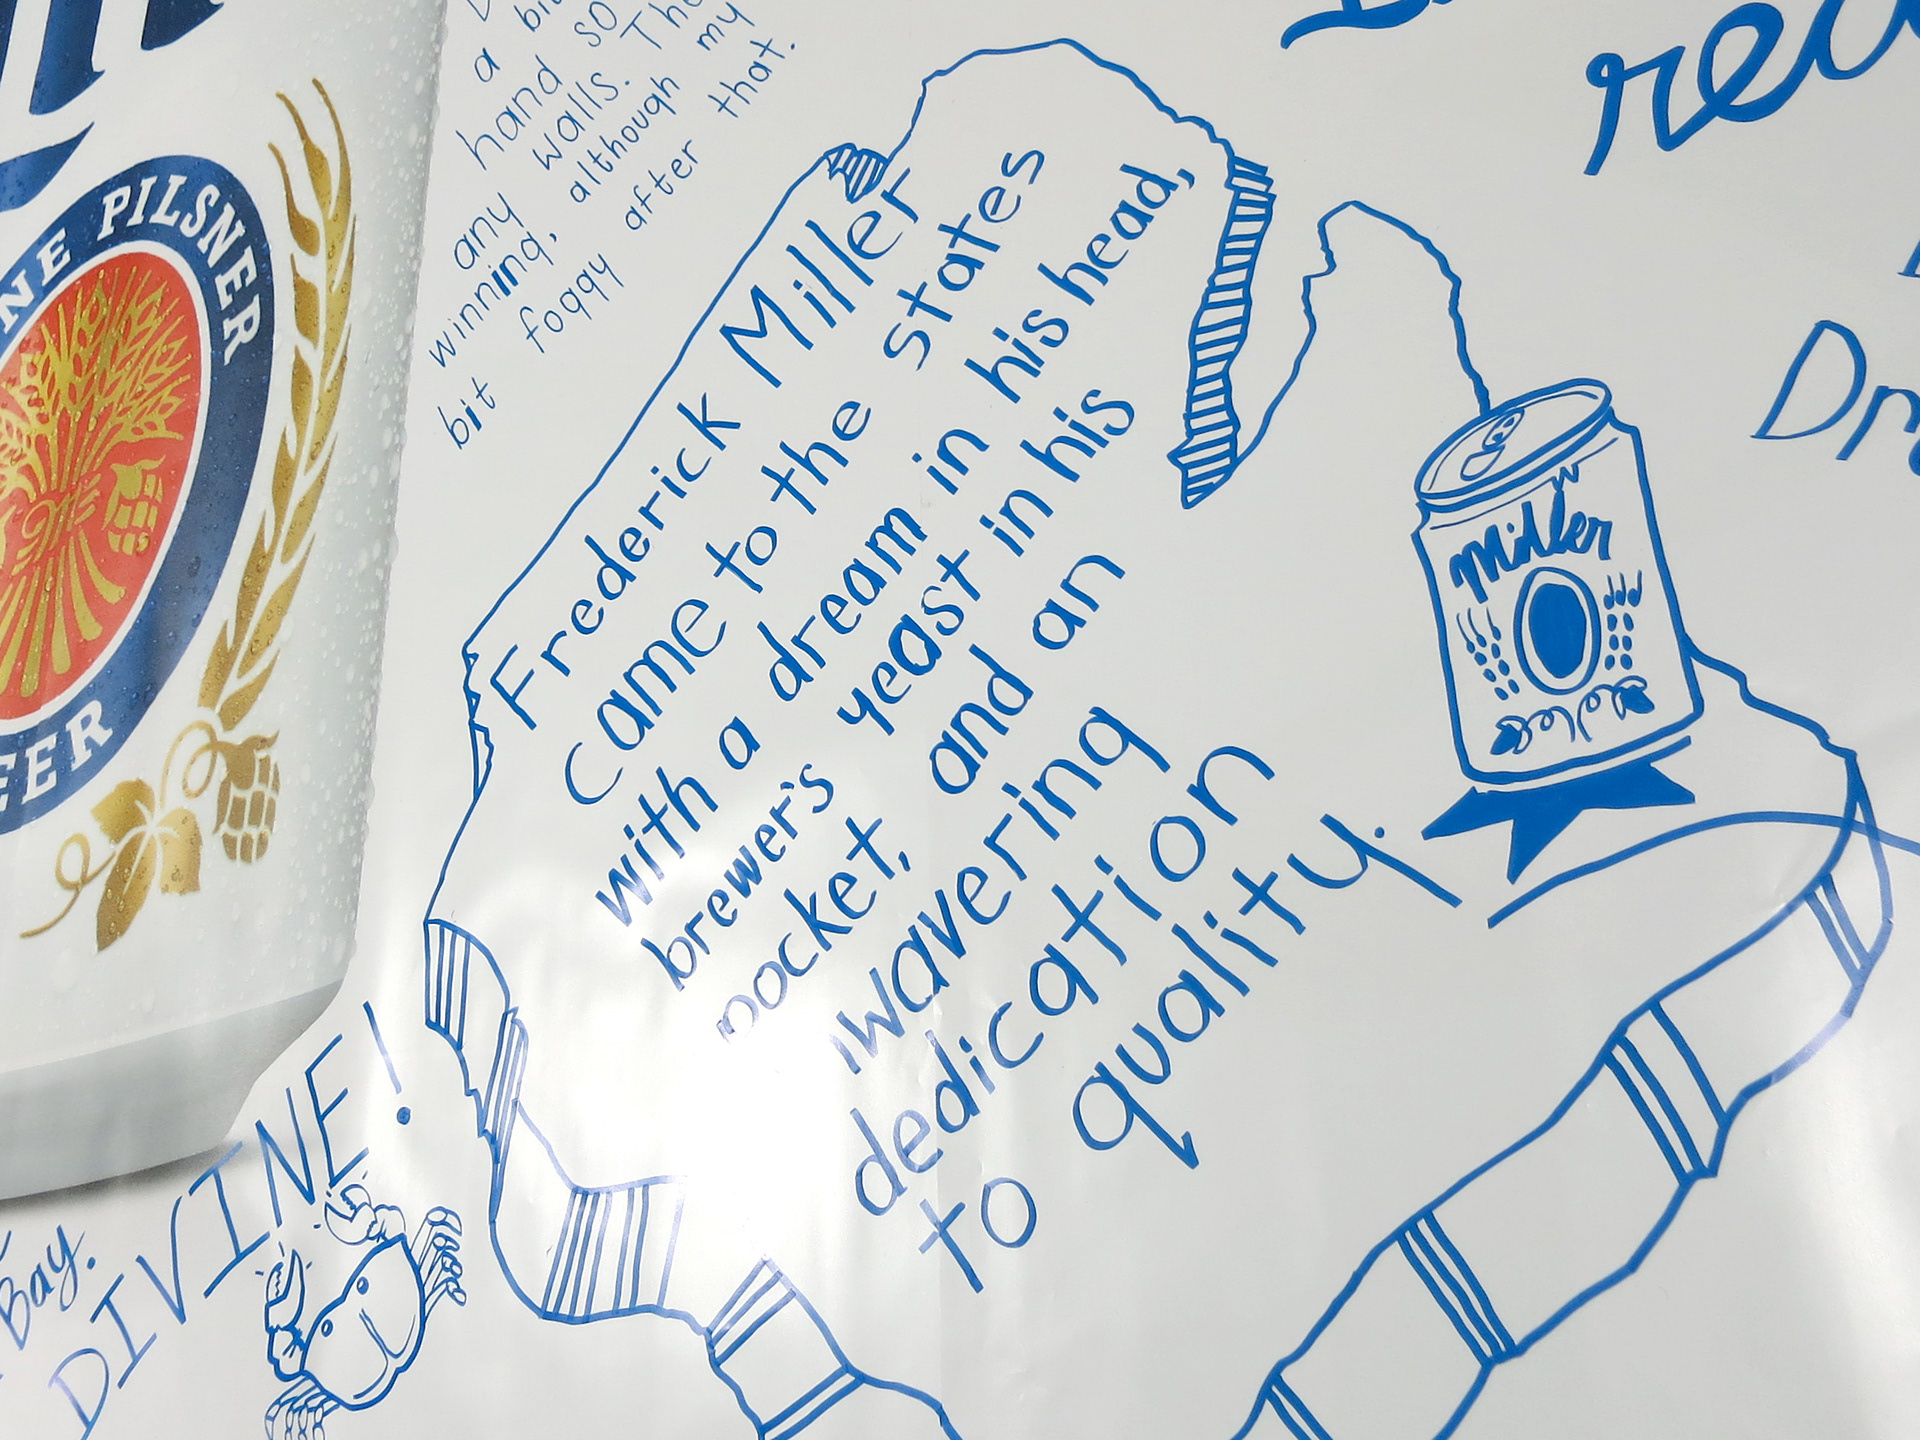 NE PILSNER
BEER
a
hand so
any walls. The
winning, although my
bit foggy after that.
Frederick Miller
came to the states
with a dream in his head,
brewer's yeast in his
pocket, and an
wavering
dedication
to quality.
Miller
Bay.
DIVINE!